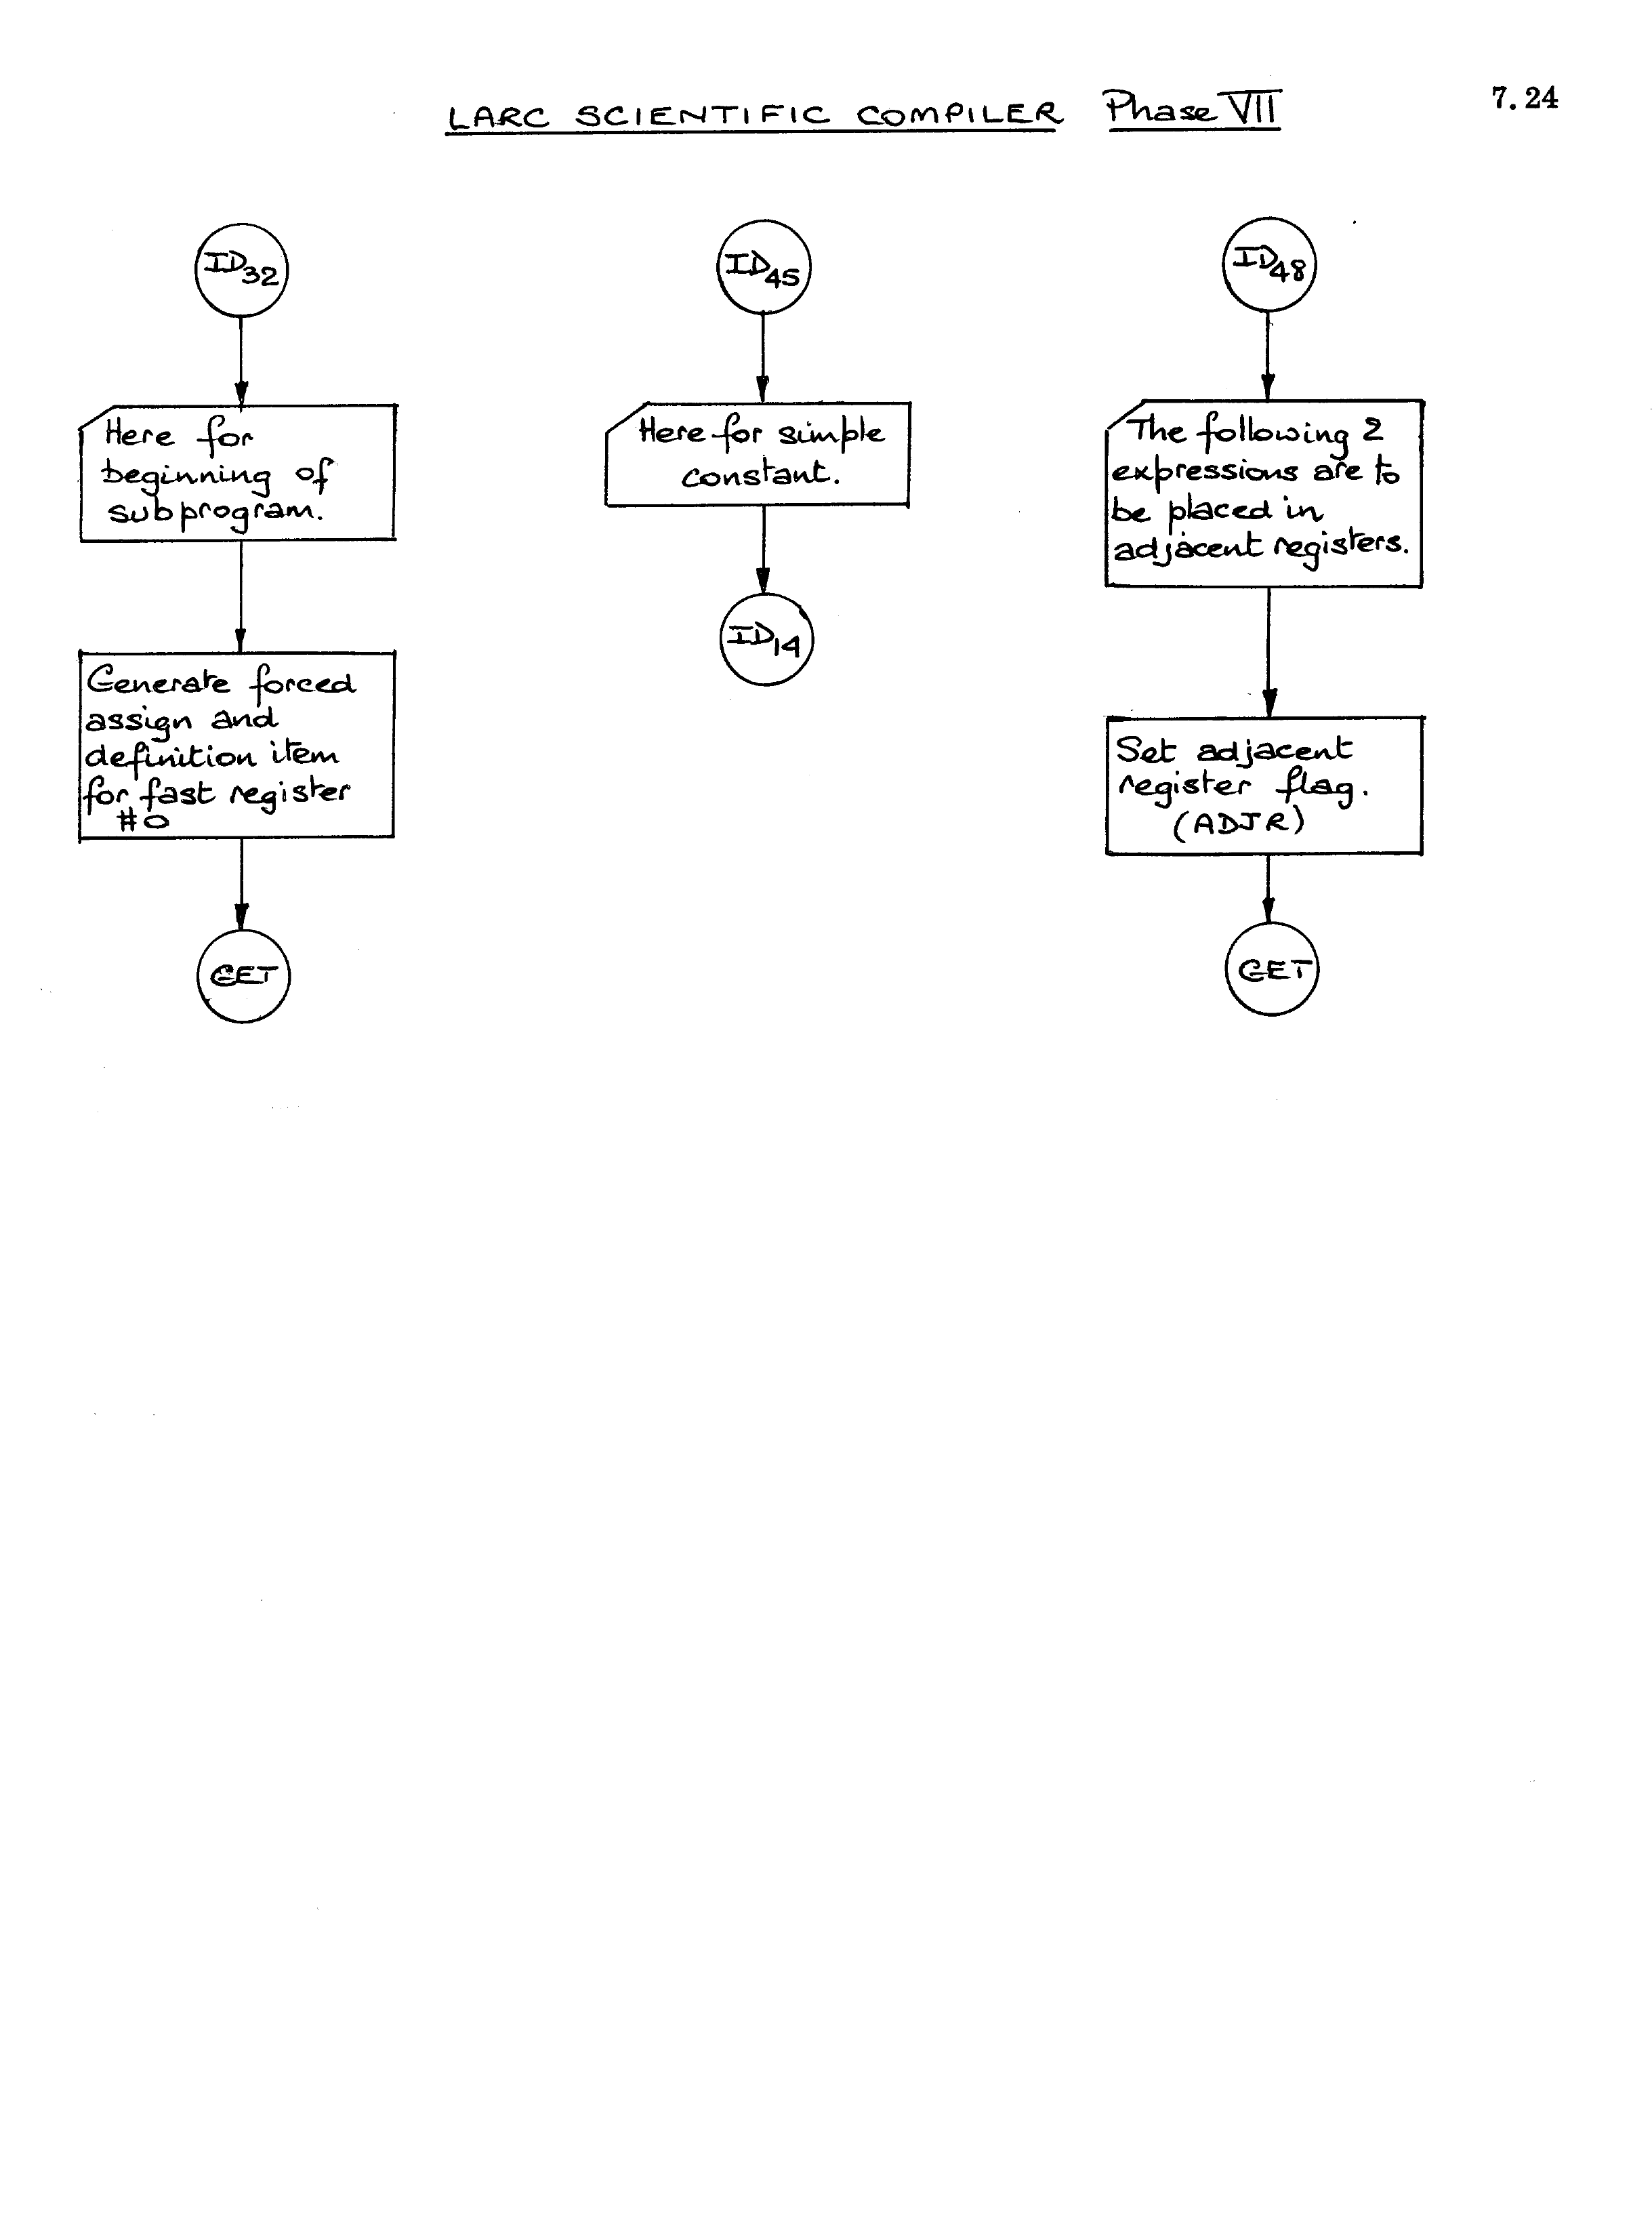 LARC SCIENTIFIC COMPILER Phase VII
7.24
ID32
Here for
beginning of
subprogram.
Generate forced
assign and
definition item
for fast register
#0
GET
ID45
Here for simple
constant.
ID14
ID48
The following 2
expressions are to
be placed in
adjacent registers.
Set adjacent
register flag.
(ADJR)
GET